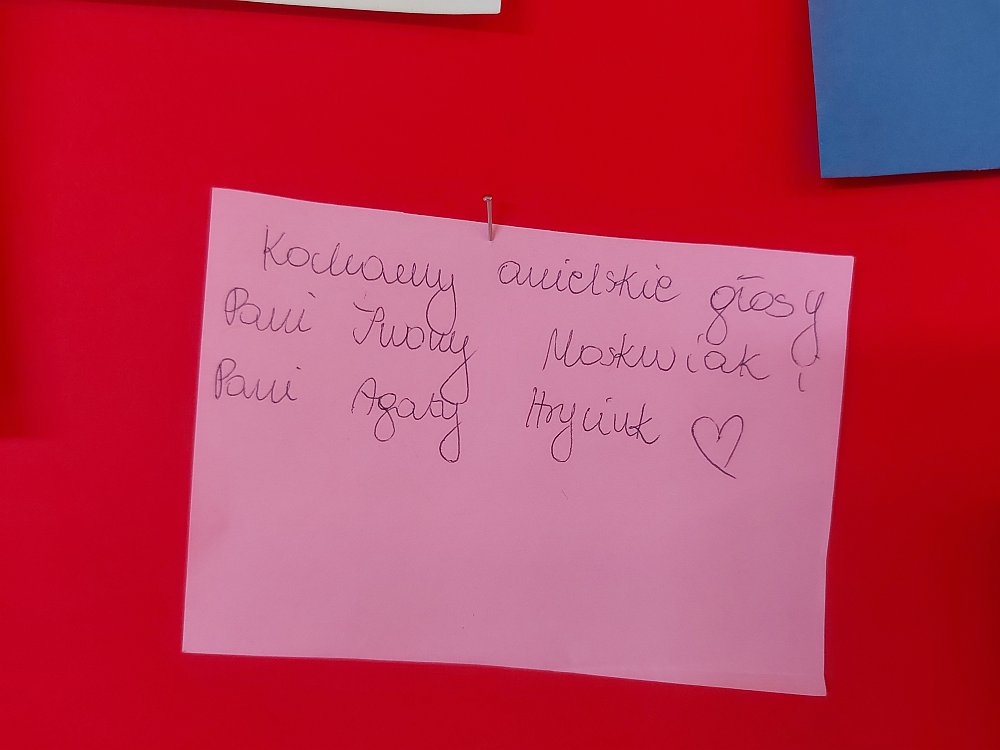 Kochamy anielskie głosy
Pani Iwony Moskwiak i
Pani Agaty Hryciuk ♡